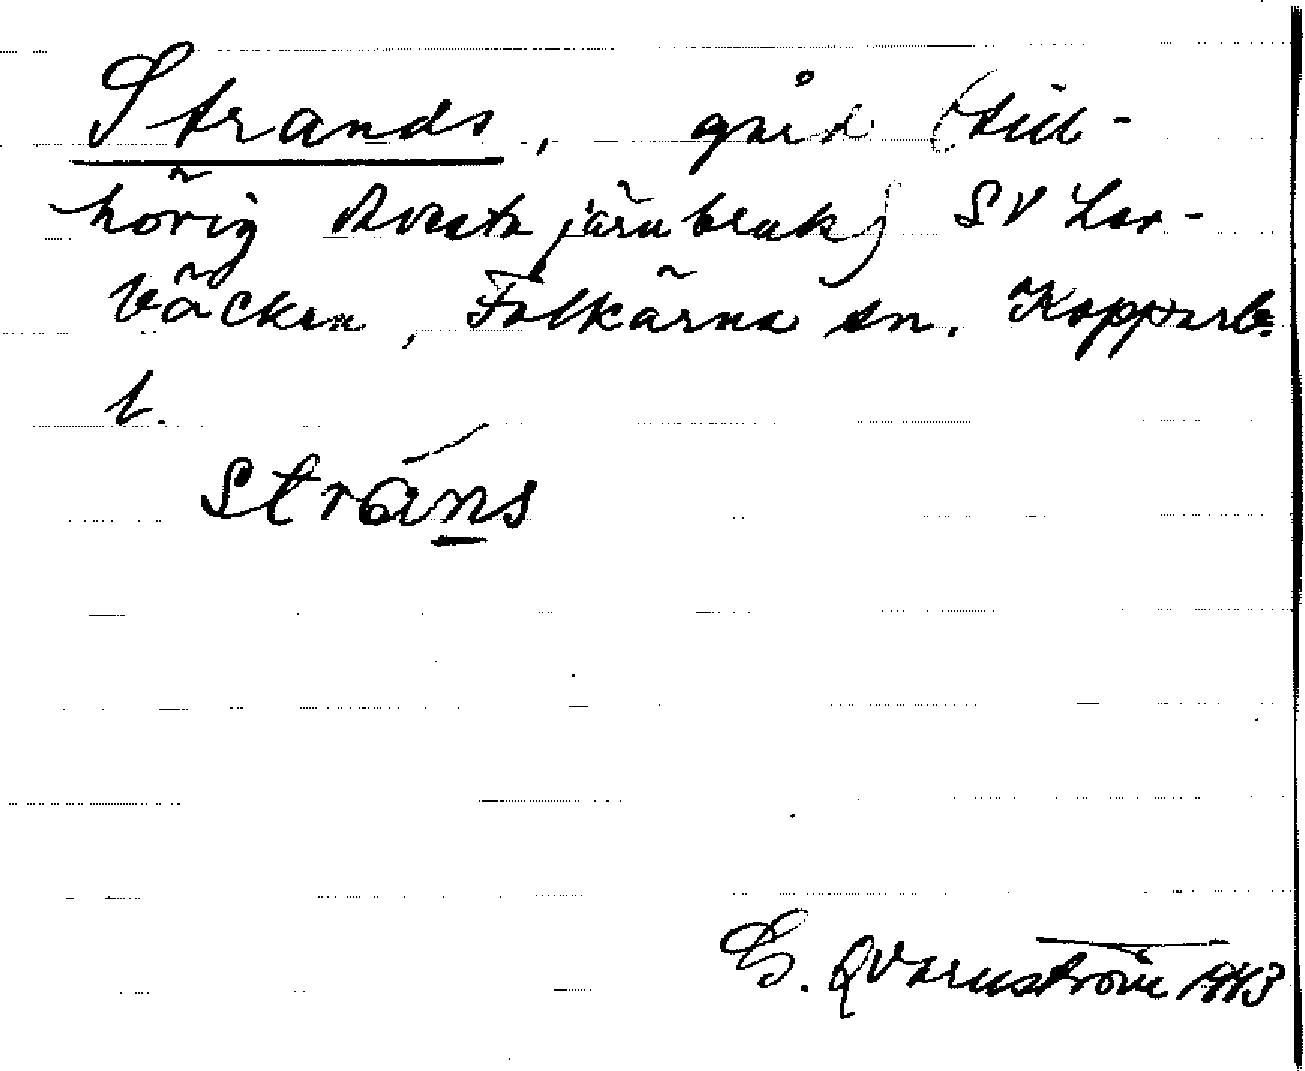 Strands, gård (till-
hörig Avesta järnbruk) SV Lar-
bäcken, Folkärna sn. Kopparb.
l.
stráns
G. Qvarnström 1943